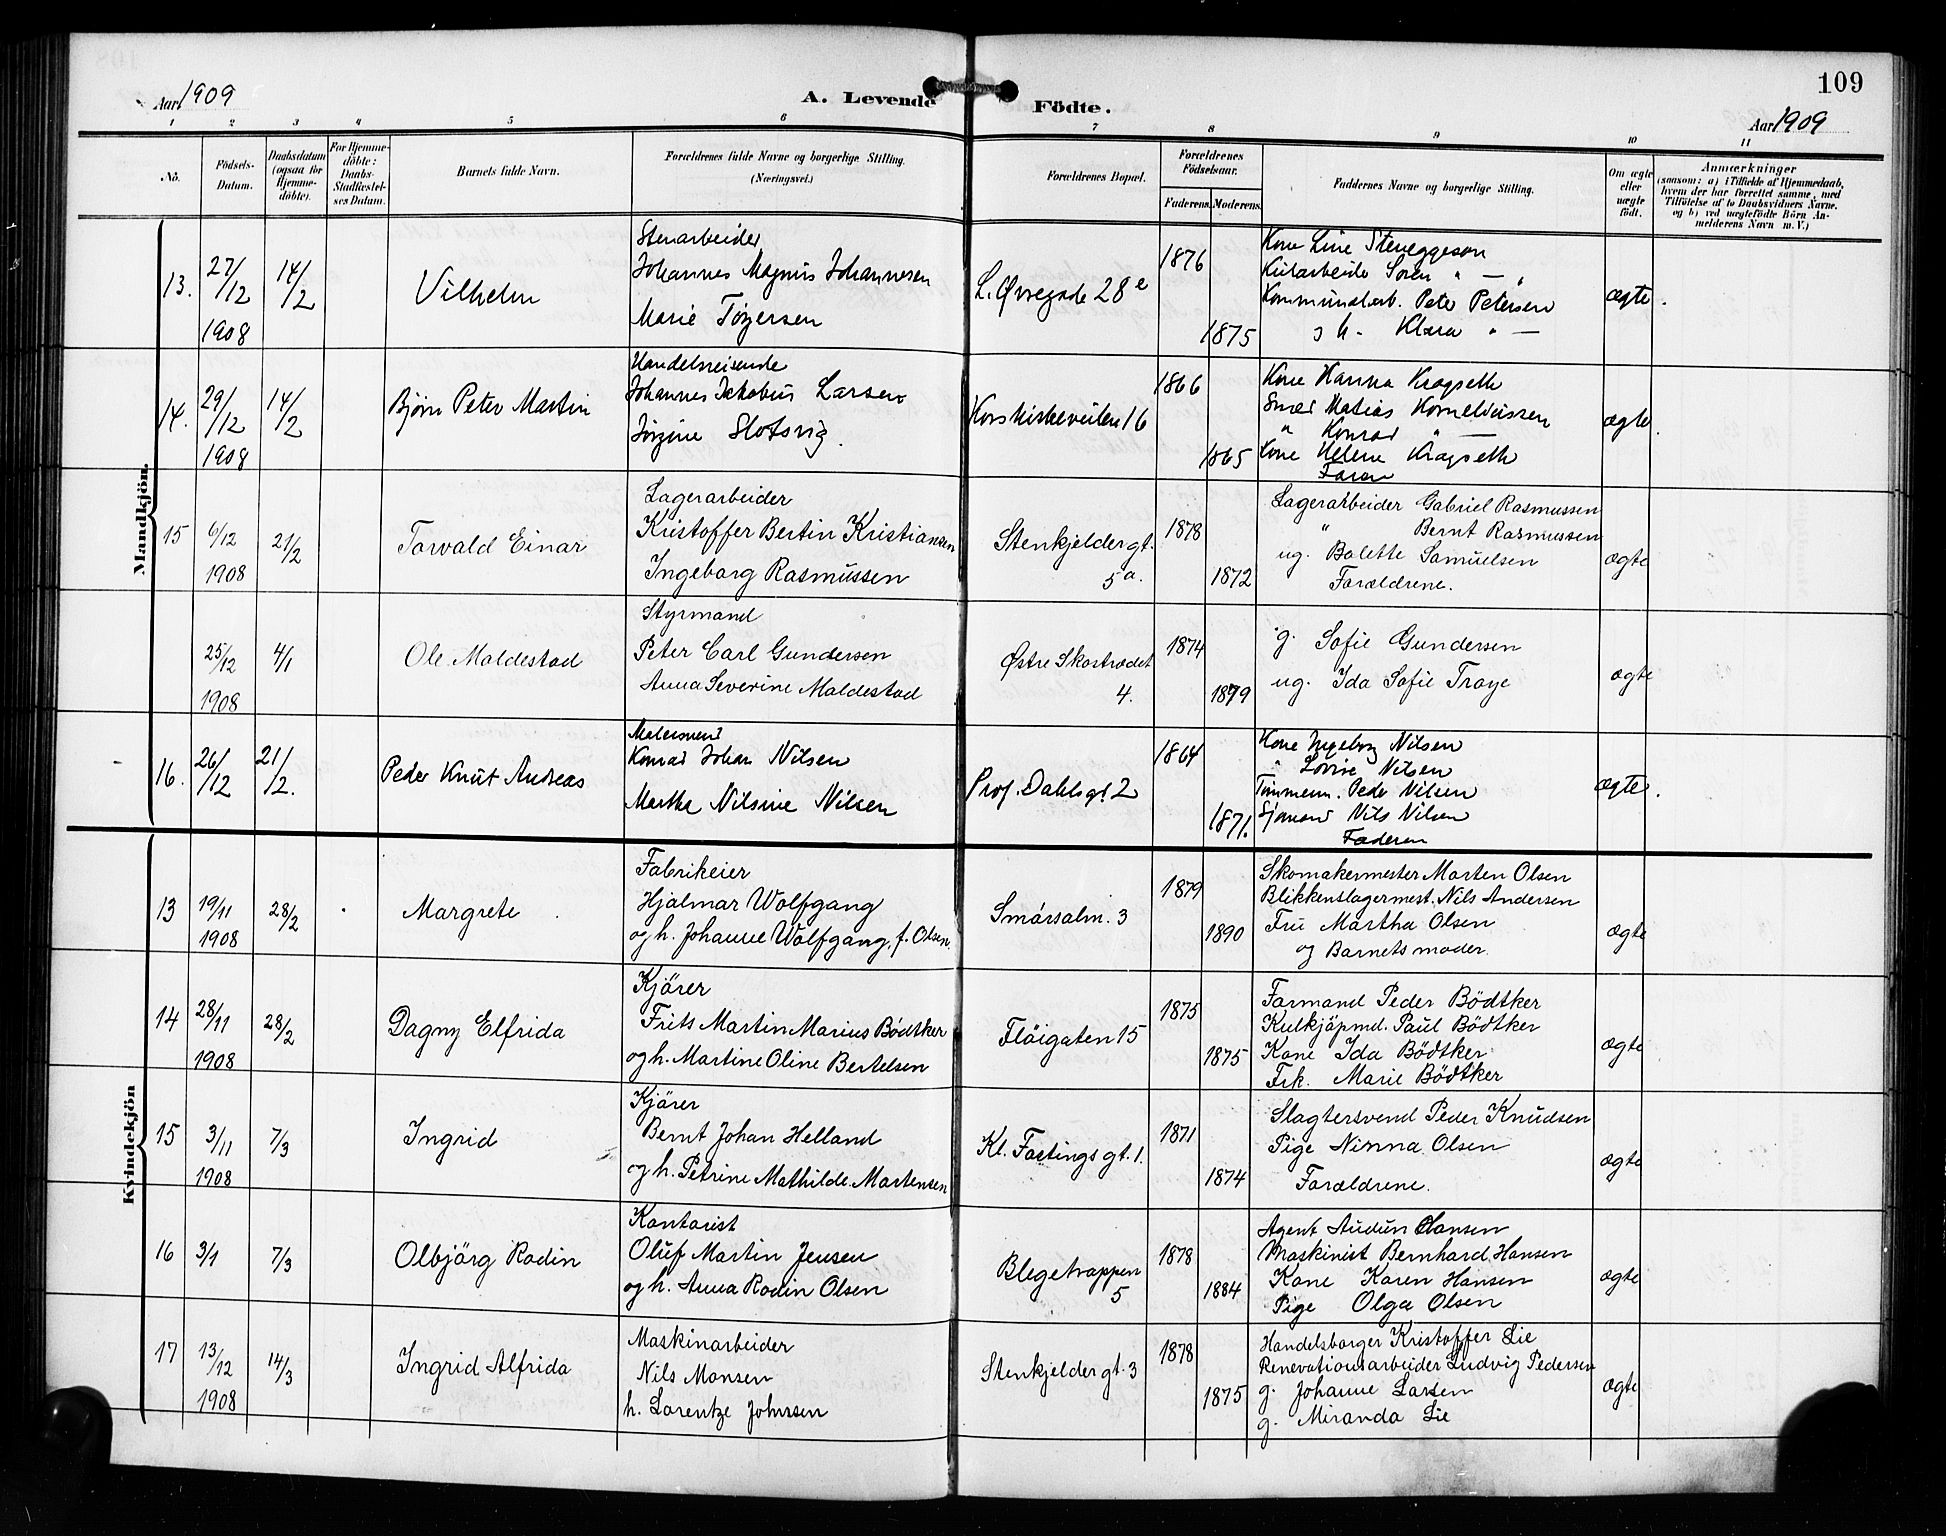 109
Aar 1909
A. Levende Födte.
Aar 1909
1 2 3 4 5 6 7 8 9 10 11
No.
Födsels-Datum.
Daabsdatum (ogsaa for Hjemme-döbte).
For Hjemme-döbte: Daabs-Stadfæstel-ses Datum.
Barnets fulde Navn.
Forældrenes fulde Navne og borgerlige Stilling. (Næringsvei.)
Forældrenes Bopæl.
Forældrenes Födselsaar.
Faderens. Moderens.
Faddernes Navne og borgerlige Stilling.
Om ægte eller uægte födt.
Anmærkninger
(saasom: a) i Tilfælde af Hjemmedaab,
hvem der har forrettet samme, med
Tilföielse af to Daabsvidners Navne.
og b) ved uægtefödte Börn An-
melderens Navn m. V.)
Mandkjön.
13. 27/12 1908 14/2
Vilhelm
Stenarbeider
Johannes Magnus Johannesen
Marie Tözersen
L. Øvregade 28e
1876
1875
Kone Line Steneggesen
Søren " — "
Kommunalarb. Peter Petersen
o h. Klara " —
ægte.
14. 29/12 1908 14/2
Bjørn Peter Martin
Handelsreisende
Johannes Jakobus Larsen
Jörgine Slotsvig.
Korskirkeveiten 16
1866
1865
Kone Hanna Kragseth
Smed Matias Korneliussen
" Konrad " —
Kone Helene Kragseth
Faren
ægte.
15 6/12 1908 21/2
Torvald Einar
Lagerarbeider
Kristoffer Bertin Kristiansen
Ingeborg Rasmussen
Stenkjelder gt.
5a.
1878
1872
Lagerarbeider Gabriel Rasmussen
" Bernt Rasmussen
ug. Bolette Samuelsen
Forældrene.
ægte
25/12 1908 4/1
Ole Maldestad
Styrmand
Peter Carl Gundersen
Anna Severine Maldestad
Østre Skostrædet
4.
1874
1879
g. Sofie Gundersen
ug. Ida Sofie Troye
ægte
16. 26/12 21/2.
Peder Knut Andreas
Malersvend
Konrad Johan Nilsen
Martha Nilsine Nilsen
Prof. Dahlsgt. 2
1864
1871.
Kone Ingeborg Nilsen
" Lovise Nilsen
Tømmerm. Peder Nilsen
Sjømand Nils Nilsen
Faderen
ægte.
Kvindekjön
13 19/11 1908 28/2
Margrete
Fabrikeier
Hjalmar Wolfgang
og h. Johanne Wolfgang, f. Olsen.
Smörsalm. 3
1879
1890
Skomakermester Morten Olsen
Blikkenslagermest. Nils Andersen
Fru Martha Olsen
og Barnets moder.
ægte
14 28/11 1908 28/2
Dagny Elfrida
Kjörer
Frits Martin Marius Bödtker
og h. Martine Oline Bertelsen
Flöigaten 15
1875
1875
Formand Peder Bödtker
Kulkjöpmd. Paul Bödtker
Kone Ida Bödtker
Frk. Marie Bödtker
ægte
15 3/11 1908 7/3
Ingrid
Kjörer
Bernt Johan Helland
og h. Petrine Mathilde Mortensen
Kl. Fastings gt. 1.
1871
1874
Slagtersvend Peder Knudsen
Pige Ninna Olsen
Forældrene.
ægte
16 3/1 7/3
Olbjörg Rodin
Kontorist
Oluf Martin Jensen
og h. Anna Rodin Olsen
Blegetrappen
5
1878
1884
Agent Audun Hansen
Maskinist Bernhard Hansen
Kone Karen Hansen
Pige Olga Olsen
ægte
17 13/12 1908 14/3
Ingrid Alfrida
Maskinarbeider
Nils Monsen
h. Lorentze Johnsen
Stenkjelder gt. 3
1878
1875
Handelsborger Kristoffer Lie
Renovationsarbeider Ludvig Pedersen
g. Johanne Larsen
g. Miranda Lie
ægte